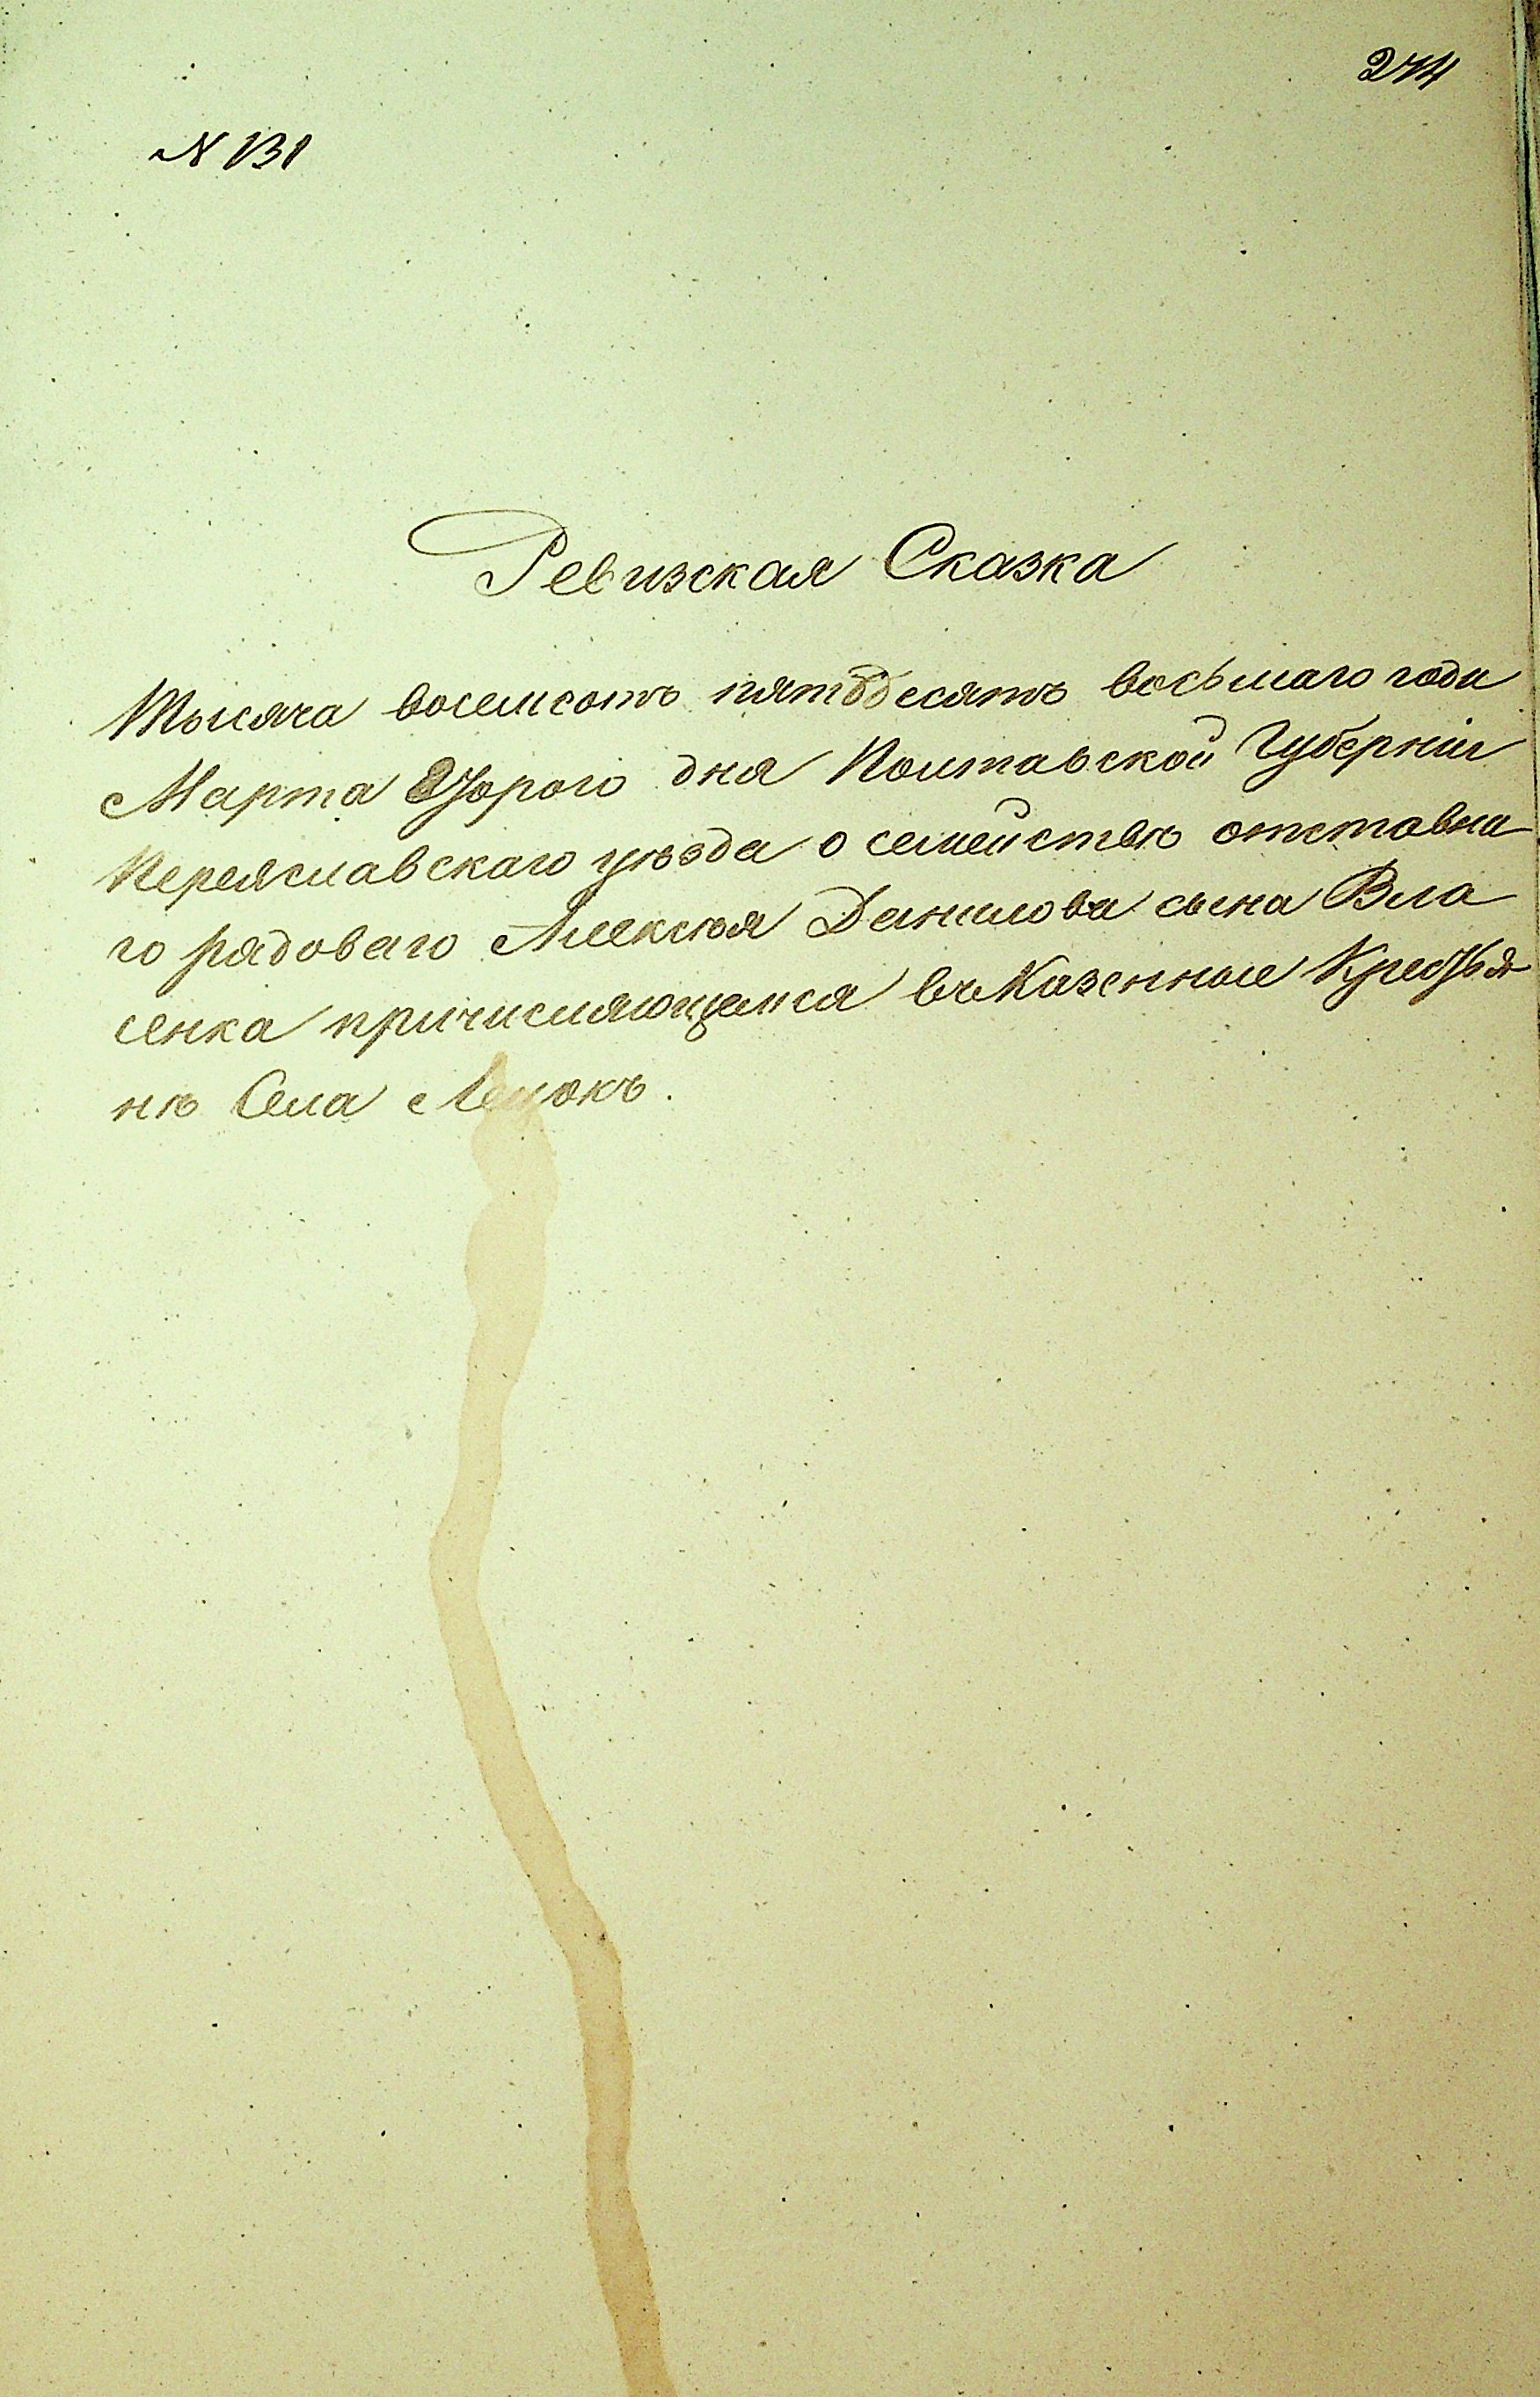 274
N 131
Ревизская Сказка
Тысяча восемсотъ пятьдесятъ восьмаго года
Марта Второго дня Полтавской Губерніи
Переяславскаго уѣзда о семействѣ отставна
го рядоваго Алексѣя Данилова сына Вла
сенка причисляющемся въ Казенные Крестья
нѣ Села